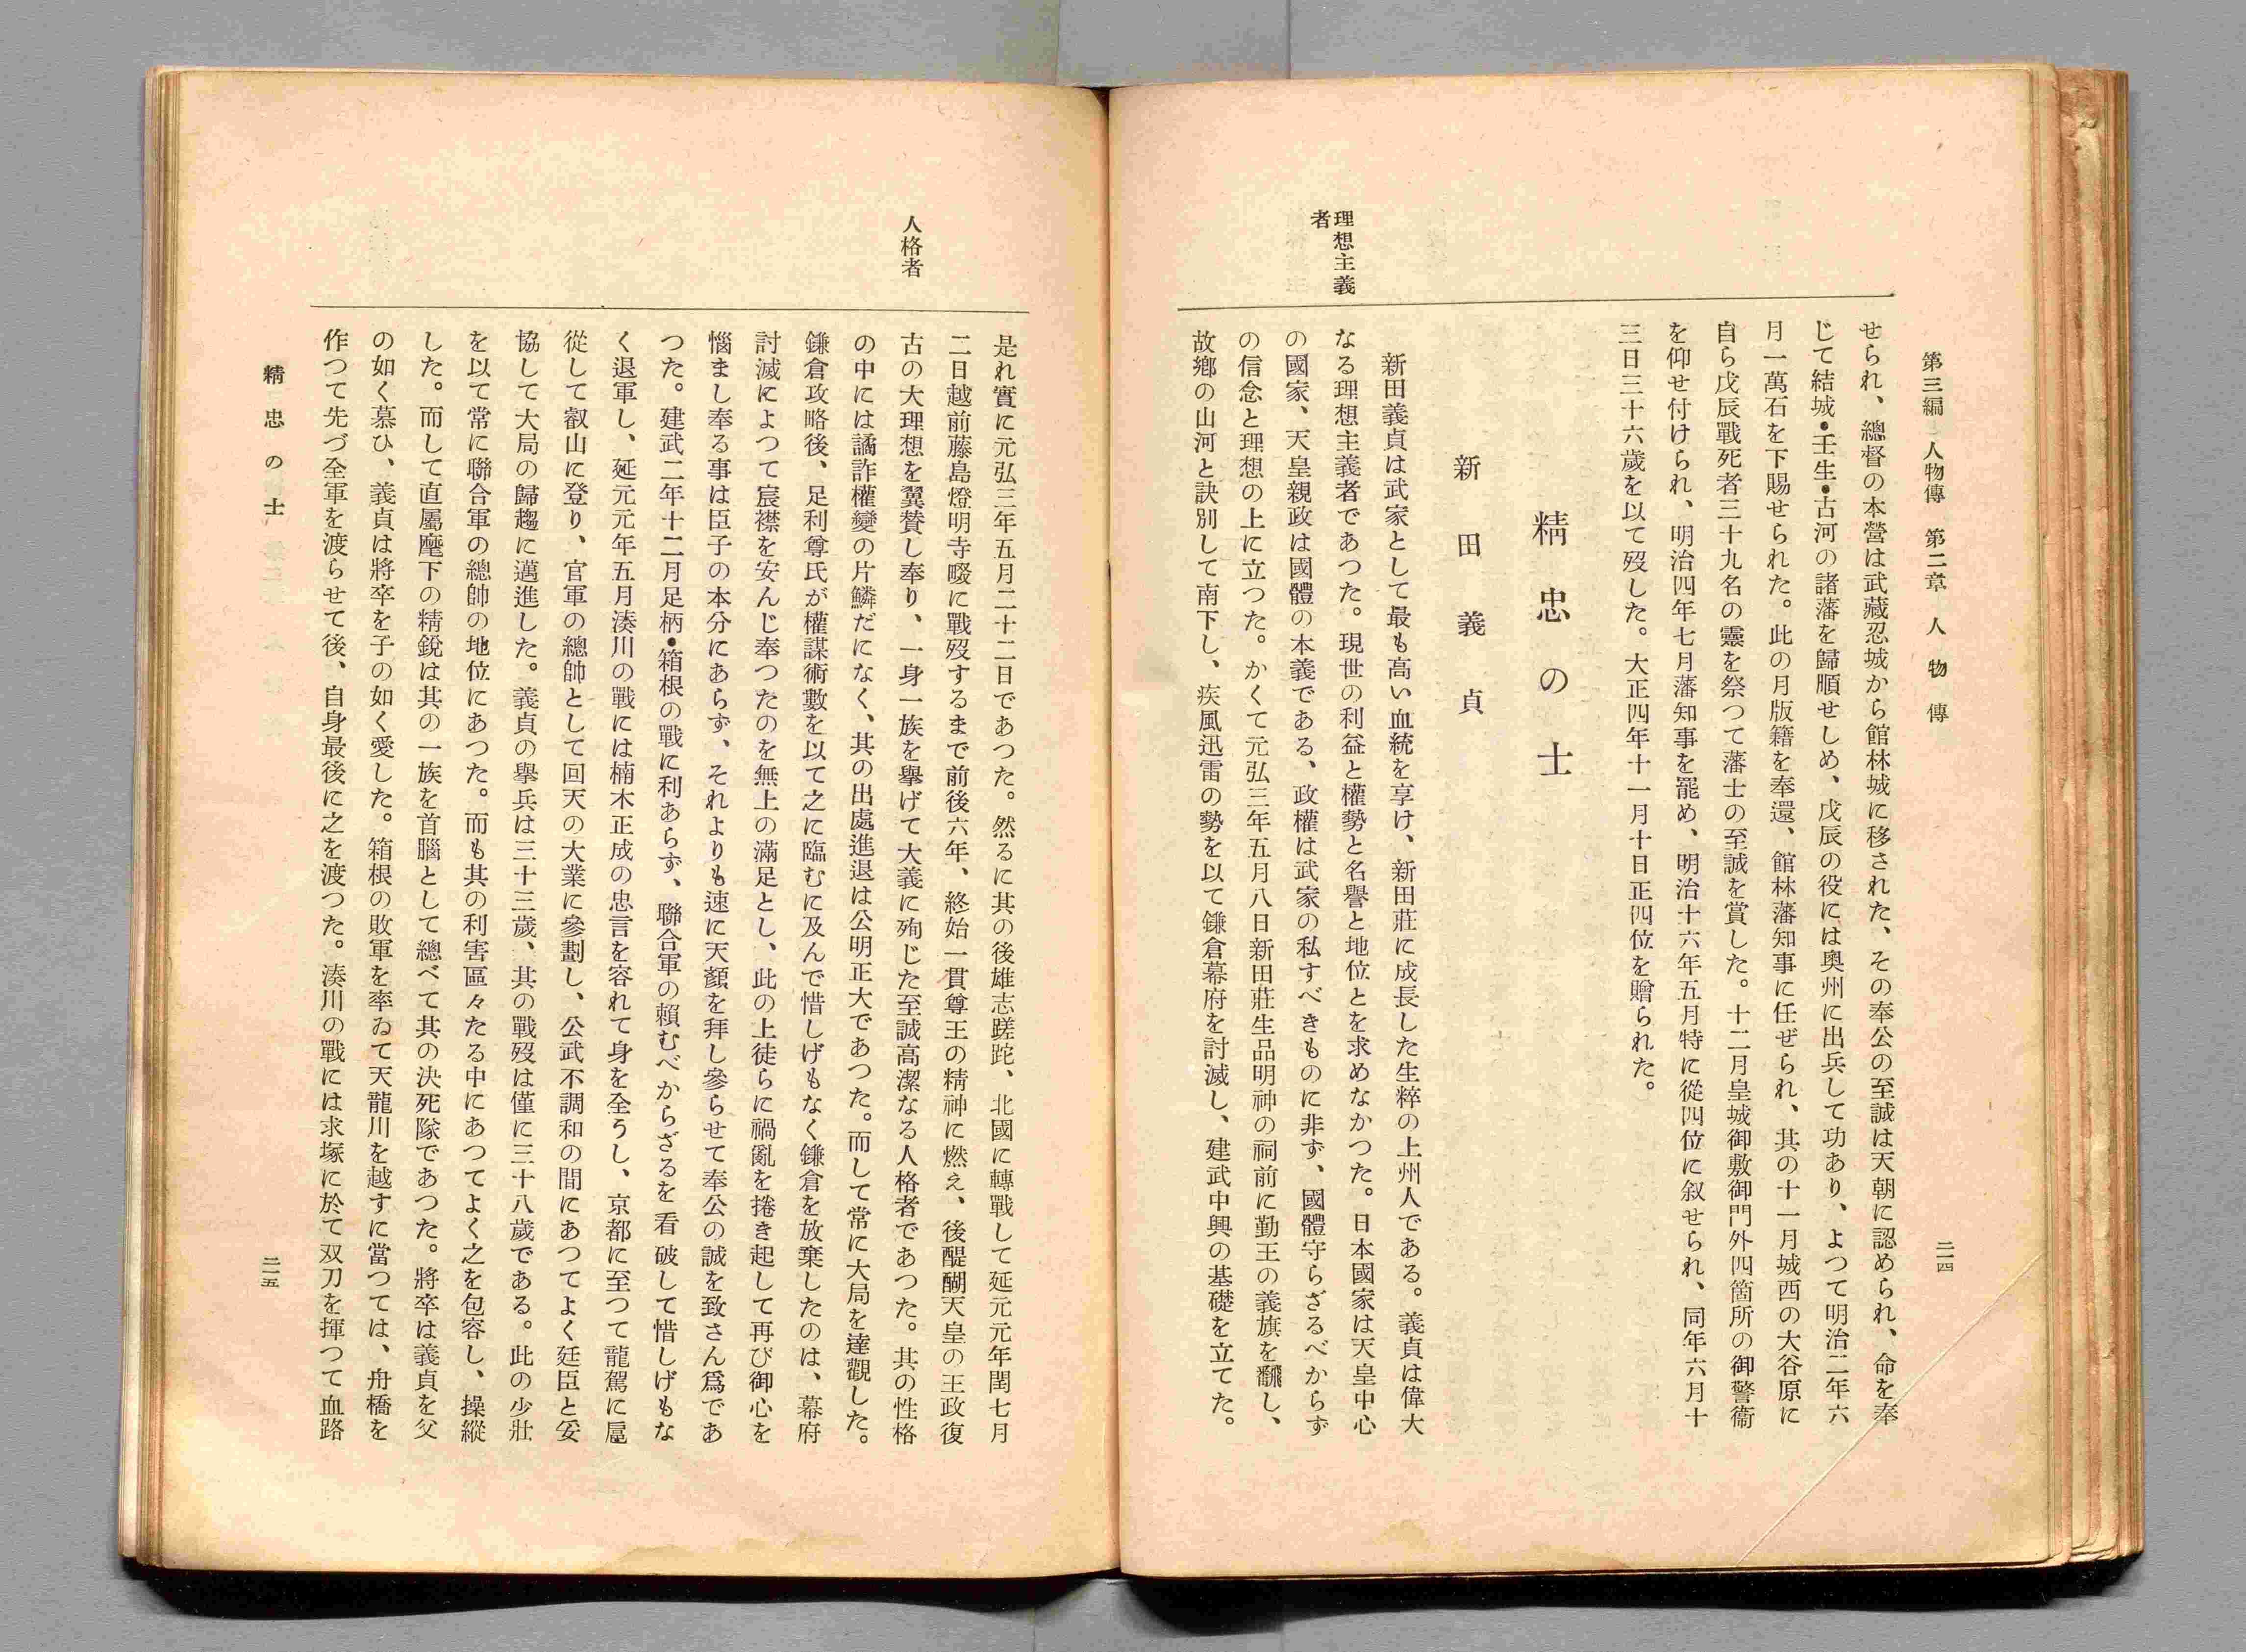 第三編　人物傳　第二章　人物傳
二一四
せられ、總督の本營は武藏忍城から館林城に移された、その奉公の至誠は天朝に認められ、命を奉
じて結城・壬生・古河の諸藩を歸順せしめ、戊辰の役には奧州に出兵して功あり、よつて明治二年六
月一萬石を下賜せられた。此の月版籍を奉還、館林藩知事に任ぜられ、其の十一月城西の大谷原に
自ら戊辰戰死者三十九名の靈を祭つて藩士の至誠を賞した。十二月皇城御敷御門外四箇所の御警衞
を仰せ付けられ、明治四年七月藩知事を罷め、明治十六年五月特に從四位に叙せられ、同年六月十
三日三十六歲を以て歿した。大正四年十一月十日正四位を贈られた。
精忠の士
新田義貞
理想主義
者
新田義貞は武家として最も高い血統を享け、新田莊に成長した生粹の上州人である。義貞は偉大
なる理想主義者であつた。現世の利益と權勢と名譽と地位とを求めなかつた。日本國家は天皇中心
の國家、天皇親政は國體の本義である、政權は武家の私すべきものに非ず、國體守らざるべからず
の信念と理想の上に立つた。かくて元弘三年五月八日新田莊生品明神の祠前に勤王の義旗を飜し、
故鄕の山河と訣別して南下し、疾風迅雷の勢を以て鎌倉幕府を討滅し、建武中興の基礎を立てた。
人格者
是れ實に元弘三年五月二十二日であつた。然るに其の後雄志蹉跎、北國に轉戰して延元元年閏七月
二日越前藤島燈明寺畷に戰歿するまで前後六年、終始一貫尊王の精神に燃え、後醍醐天皇の王政復
古の大理想を翼贊し奉り、一身一族を擧げて大義に殉じた至誠高潔なる人格者であつた。其の性格
の中には譎詐權變の片鱗だになく、其の出處進退は公明正大であつた。而して常に大局を達觀した。
鎌倉攻略後、足利尊氏が權謀術數を以て之に臨むに及んで惜しげもなく鎌倉を放棄したのは、幕府
討滅によつて宸襟を安んじ奉つたのを無上の滿足とし、此の上徒らに禍亂を捲き起して再び御心を
惱まし奉る事は臣子の本分にあらず、それよりも速に天顏を拜し參らせて奉公の誠を致さん爲であ
つた。建武二年十二月足柄・箱根の戰に利あらず、聯合軍の賴むべからざるを看破して惜しげもな
く退軍し、延元元年五月湊川の戰には楠木正成の忠言を容れて身を全うし、京都に至つて龍駕に扈
從して叡山に登り、官軍の總帥として回天の大業に參劃し、公武不調和の間にあつてよく廷臣と妥
協して大局の歸趨に邁進した。義貞の擧兵は三十三歲、其の戰歿は僅に三十八歲である。此の少壯
を以て常に聯合軍の總帥の地位にあつた。而も其の利害區々たる中にあつてよく之を包容し、操縱
した。而して直屬麾下の精銳は其の一族を首腦として總べて其の決死隊であつた。將卒は義貞を父
の如く慕ひ、義貞は將卒を子の如く愛した。箱根の敗軍を率ゐて天龍川を越すに當つては、舟橋を
作つて先づ全軍を渡らせて後、自身最後に之を渡つた。湊川の戰には求塚に於て双刀を揮つて血路
精忠の士
二一五